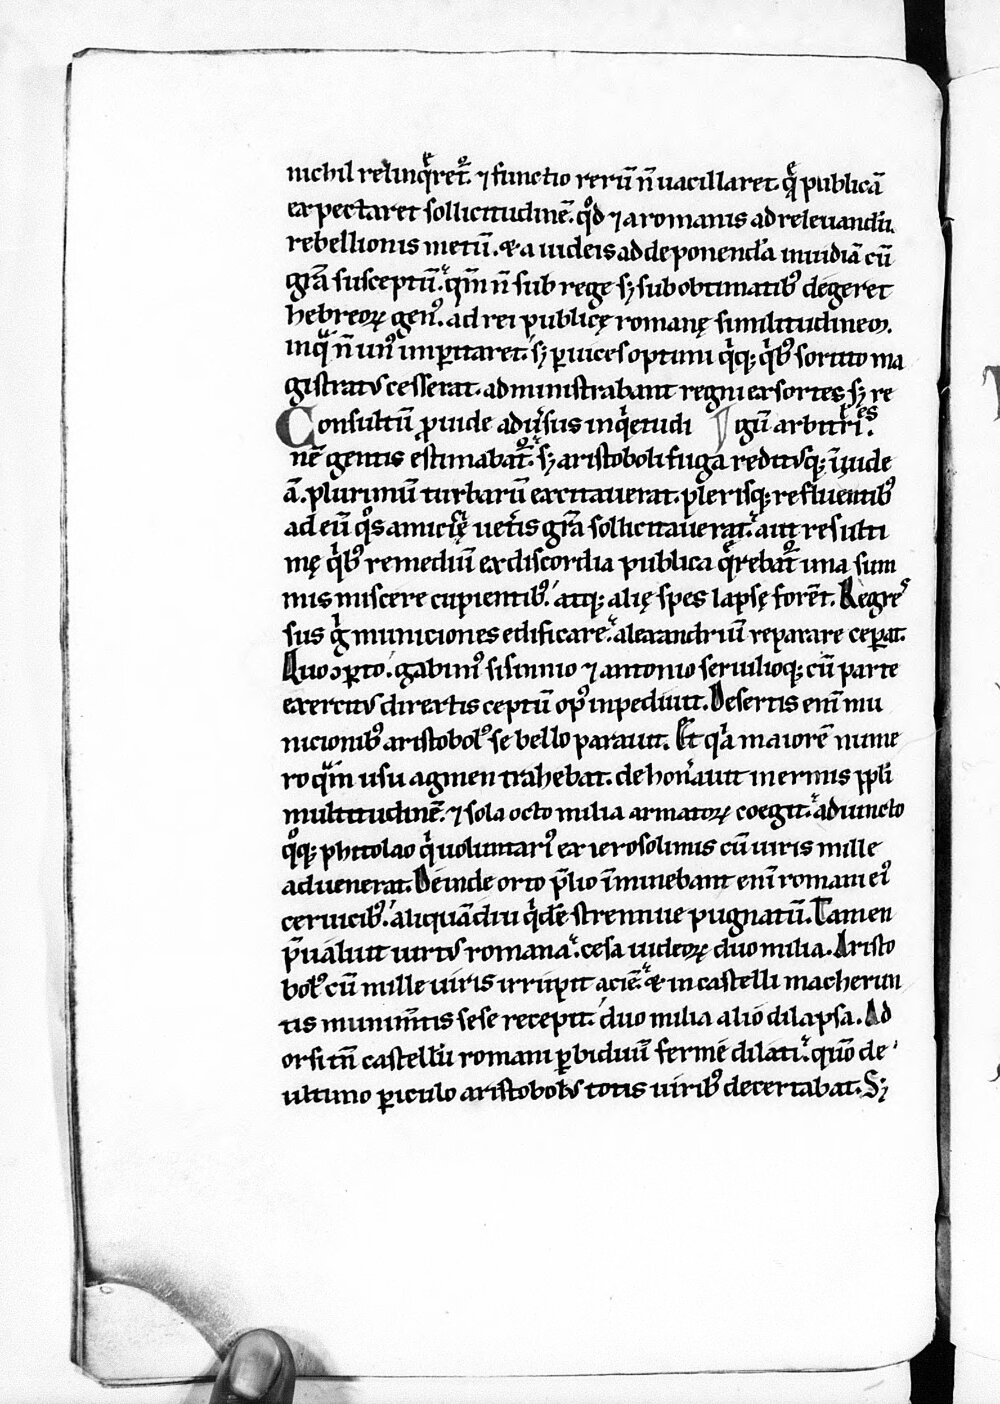 nichil relinq̄ret᷑. ⁊ functio rerū n̄ uacillaret. q̄ publicā
expectaret sollicitudinē. qͦd ⁊ a romanis ad releuandū
rebellionis metū. & a iudeis ad deponenda inuidiā cū
gr̄a susceptū. qm̄ n̄ sub rege sꝫ sub obtimatibꝰ degeret
hebreoꝝ genꝰ. ad rei publicę romanę similitudinem.
in qͣ n̄ unꝰ imperitaret. sꝫ ꝑ uices optimi qͥqꝫ qͥbꝰ sortito ma
gistratus cesserat. administrabant regni exsortes sꝫ re
gum arbitri.
Consultū ꝓinde adūsus inqͥetudi
nē gentis estimabat᷑. sꝫ aristoboli fuga reditusqꝫ ī iude
ā. plurimū turbarū excitauerat. plerisqꝫ refluentibꝰ
ad eū qͦs amicitię uet̄is gr̄a sollicitauerat. aut resulti
mę qͥbꝰ remediū ex discordia publica q̄rebat᷑ una sum
mis miscere cupientibꝰ. atqꝫ alię spes lapsę forēt. Regres
sus gͥ municiones edificare. alexandriū reparare cep̄at.
Quo ɔꝑto. gabinꝰ sisinnio ⁊ antonio seruilioqꝫ cū parte
exercitus directis ceptū opꝰ inpediuit. Desertis enī mu
nicionibꝰ aristobolꝰ se bello parauit. Et qͥa maiorē nume
ro qͣm usu agmen trahebat. dehon̄auit inermis ppl̄i
multitudinē. ⁊ sola octo milia armatoꝝ coegit. adiuncto
qͦqꝫ phitolao qͥ uoluntariꝰ ex ierosolimis cū uiris mille
aduenerat. Deinde orto p̄lio īminebant enī romani eiꝰ
ceruicibꝰ. aliquādiu qͥdē strennue pugnatū. Tamen
p̄ualuit uirtus romana. cesa iudeoꝝ duo milia. Aristo
bolꝰ cū mille uiris irrupit aciē. & in castelli macherun
tis munim̄tis sese recepit. duo milia alio dilapsa. Ad
orsi tn̄ castellū romani ꝑ biduū fermē dilati. quō de
ultimo ꝑiculo aristobolus totis uiribꝰ decertabat. Sꝫ